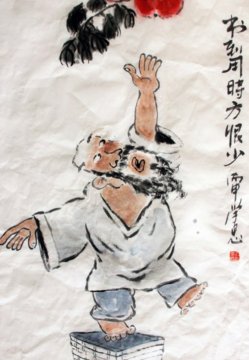 书到用時方恨少